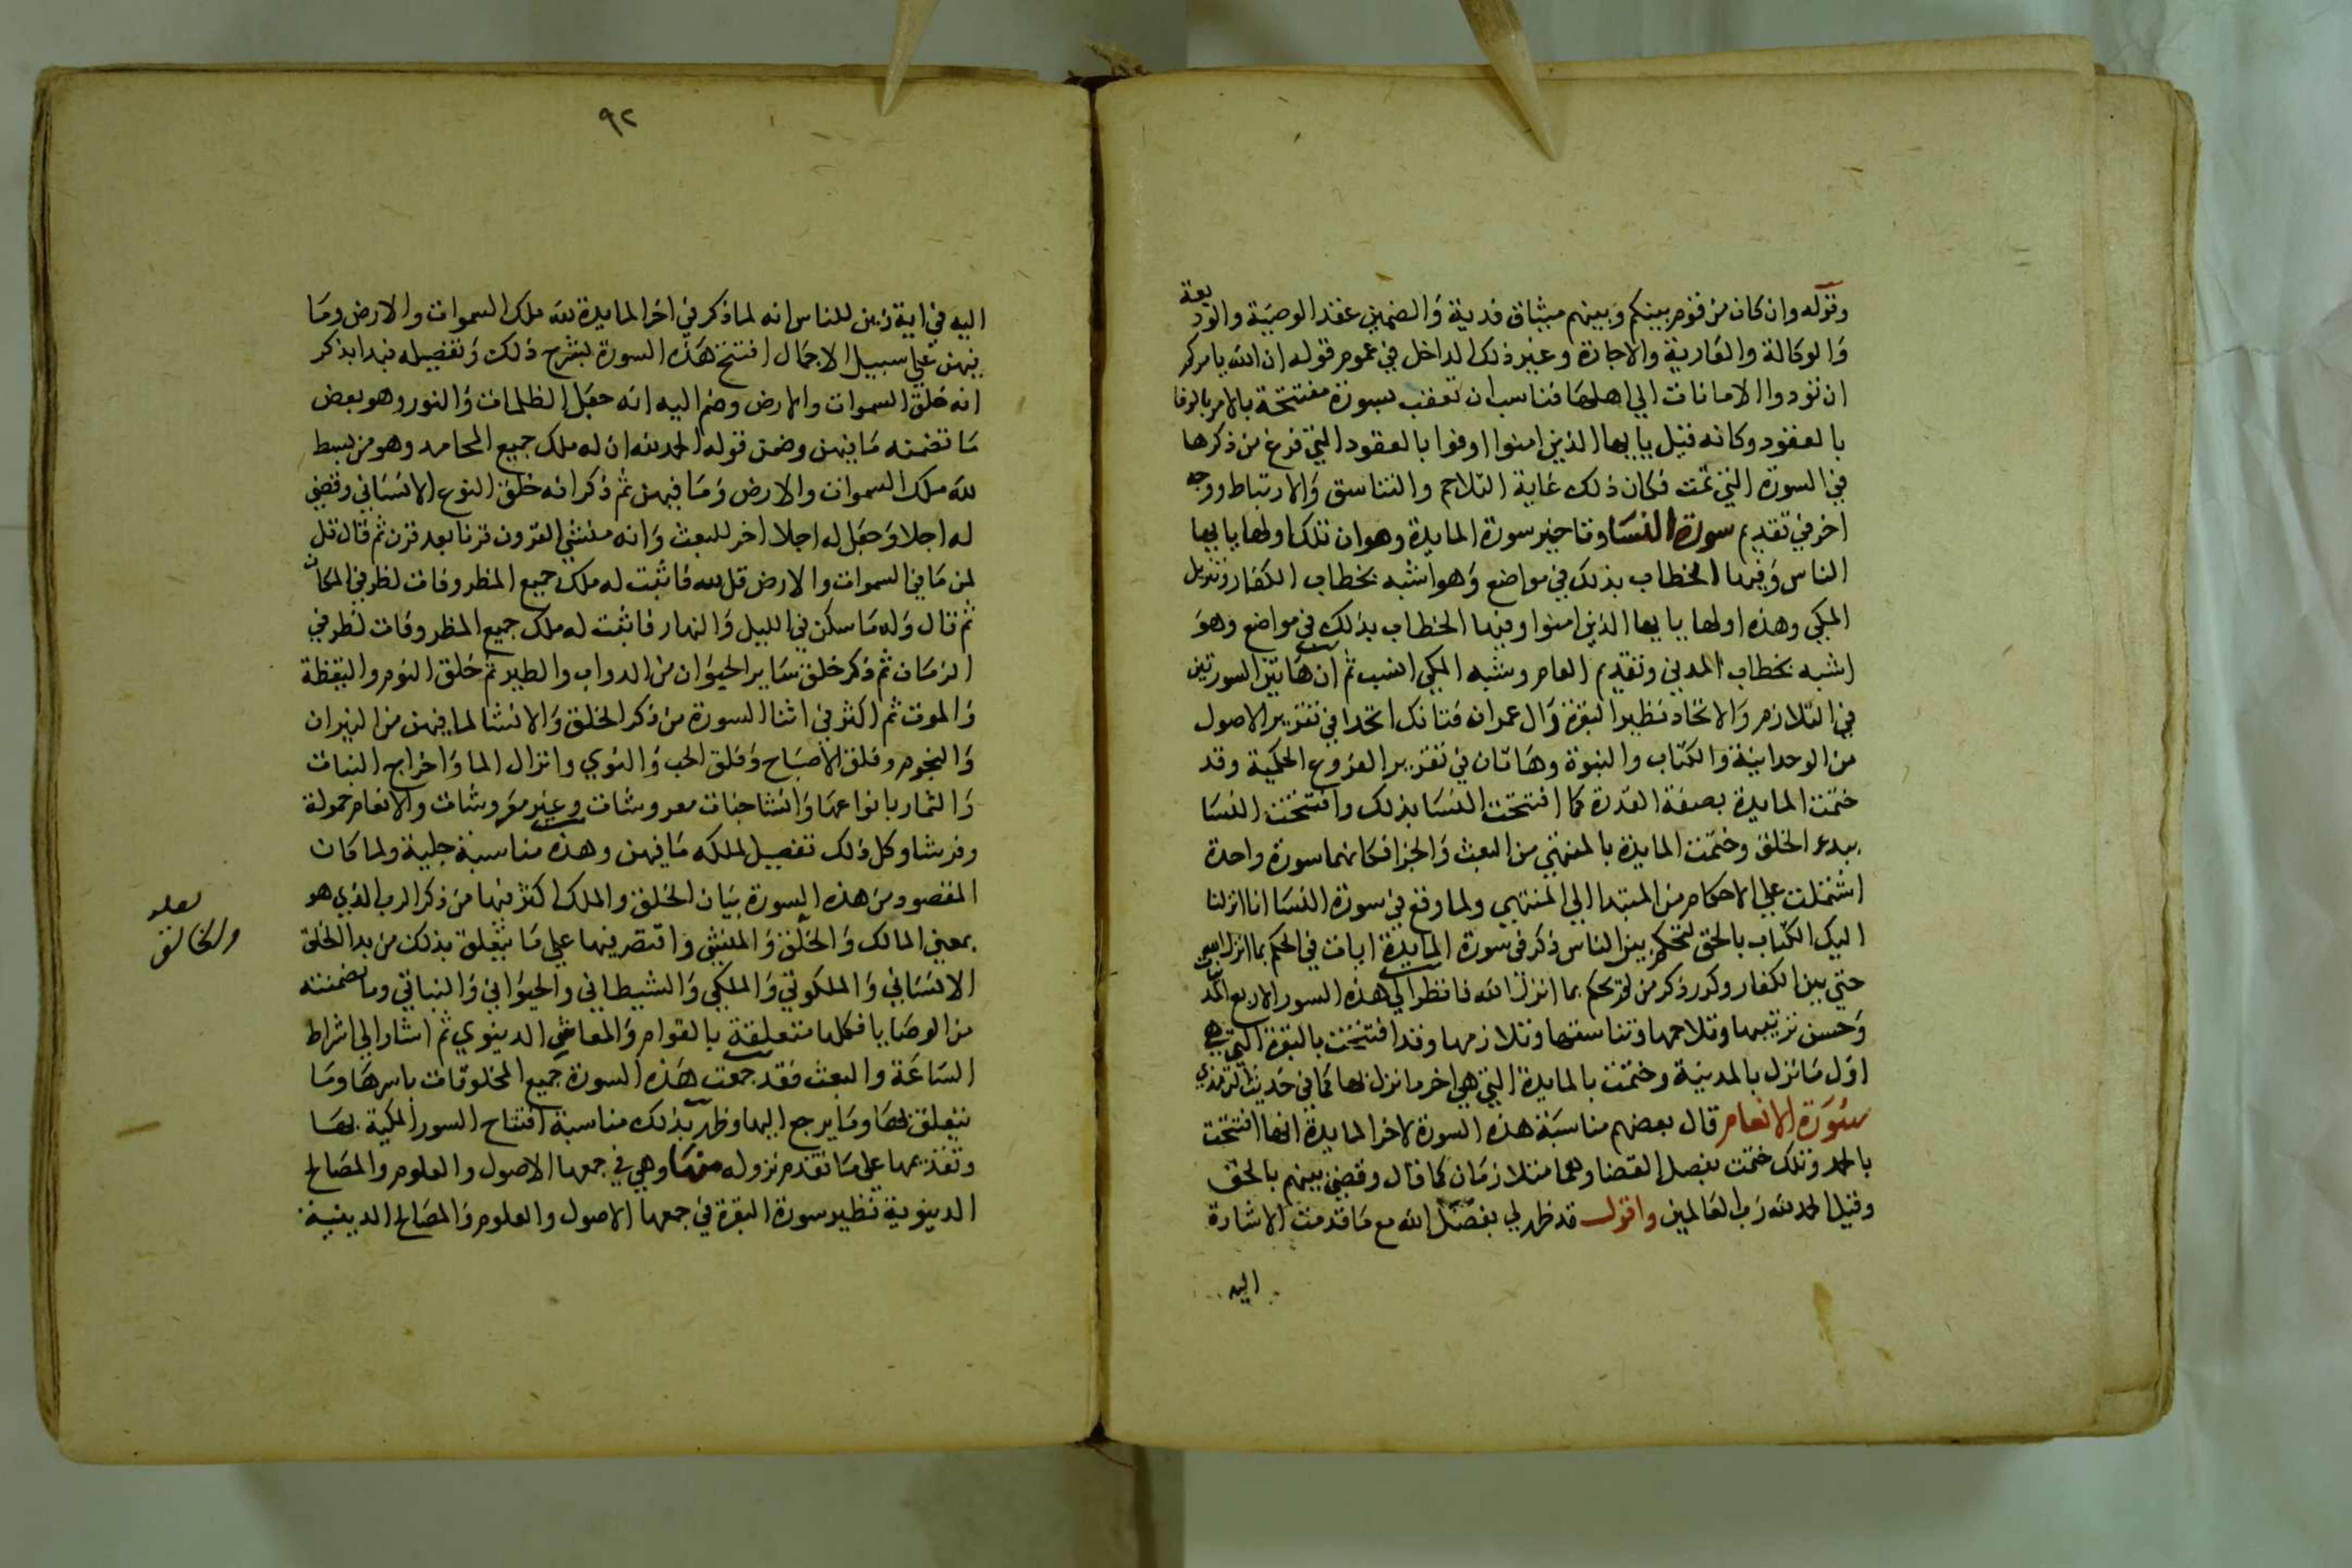 وقوله وان كان من قوم بينكم وبينهم ميثاق فدية والضمني عقد الوصية والوديعة
والوكالة والعارية والاجارة وغير ذلك الداخل في عموم قوله ان الله يامركم
ان تودوا الامانات الي اهلها فناسب ان تعقب بسورة مفتتحة بالامر بالوفا
بالعقود وكانه قيل يايها الذين امنوا اوفوا بالعقود التي فرغ من ذكرها
في السورة التي تمت فكان ذلك غاية التلاحم والتناسق والارتباط ووجه
اخر في تقديم سورة النسا وتاخير سورة المايدة وهو ان تلك اولها يايها
الناس وفيها الخطاب بذلك في مواضع وهو اشبه بخطاب الكفار وتنزيل
المكي وهذه اولها يايها الذين امنوا وفيها الخطاب بذلك في مواضع وهو
اشبه بخطاب المدني وتقديم العام وشبه المكي انسب ثم ان هاتين السورتين
في التلازم والاتحاد نظير البقرة وال عمران فتانك اتحدا في تقرير الاصول
من الوحدانية والكتاب والنبوة وهاتان في تقرير الفروع الحكمية وقد
ختمت المايدة بصفة القدرة كما افتتحت النسا بذلك وافتتحت النسا
ببدء الخلق وختمت المايدة بالمنتهي من البعث والجزا فكانهما سورة واحدة
اشتملت علي الاحكام من المبتدا الي المنتهي ولما وقع في سورة النسا انا انزلنا
اليك الكتاب بالحق لتحكم بين الناس ذكر في سورة المايدة ايات في الحكم بما انزل الله
حتي بين الكفار وكرر ذكر من لم يحكم بما انزل الله فانظر الي هذه السور الاربع المدنيات
وحسن ترتيبها وتلاحمها وتناسقها وتلازمها وقد افتتحت بالبقرة التي هي
اول ما نزل بالمدينة وختمت بالمايدة التي هي اخر ما نزل بها كما في حديث الترمذي
سورة الانعام قال بعضهم مناسبة هذه السورة لاخر المايدة انها افتتحت
بالحمد وتلك ختمت بفصل القضا وهما متلازمان كما قال وقضي بينهم بالحق
وقيل الحمد لله رب العالمين واقول قد ظهر لي بفضل الله مع ما قدمت الاشارة
اليه
٩٢
اليه في اية زين للناس انه لما ذكر في اخر المايدة لله ملك السموات والارض وما
فيهن علي سبيل الاجمال افتتح هذه السورة بشرح ذلك وتفصيله فبدا بذكر
انه خلق السموات والارض وضم اليه انه جعل الظلمات والنور وهو بعض
ما تضمنه ما فيهن وضمن قوله الحمد لله ان له ملك جميع المحامد وهو من بسط
لله ملك السموات والارض وما فيهن ثم ذكر انه خلق النوع الانساني وقضي
له اجلا وجعل له اجلا اخر للبعث وانه منشي القرون قرنا بعد قرن ثم قال قل
لمن ما في السموات والارض قل لله فاثبت له ملك جميع المظروفات لظرفي المكان
ثم قال وله ما سكن في الليل والنهار فاثبت له ملك جميع المظروفات لظرفي
الزمان ثم ذكر خلق ساير الحيوان من الدواب والطير ثم خلق النوم واليقظة
والموت ثم اكثر في اثنا السورة من ذكر الخلق والانشا لما فيهن من النيران
والنجوم وفلق الاصباح وفلق الحب والنوي وانزال الما واخراج النبات
والثمار بانواعها وانشا جنات معروشات وغير معروشات والانعام حمولة
وفرشا وكل ذلك تفصيل لملكه ما فيهن وهذه مناسبة جلية ولما كان
المقصود من هذه السورة بيان الخلق والملك اكثر فيها من ذكر الرب الذي هو
بمعني المالك والخلق والمنشي واقتصر فيها علي ما يتعلق بذلك من بدا الخلق
الانساني والملكوتي والملكي والشيطاني والحيواني والنباتي وما تضمنته
من الوصايا فكلها متعلقة بالقوام والمعاش الدينوي ثم اشار الي اشراط
الساعة والبعث فقد جمعت هذه السورة جميع المخلوقات باسرها وما
يتعلق بها وما يرجع اليها وظهر بذلك مناسبة افتتاح السور المكية بها
وتقديمها علي ما تقدم نزوله منها وهي في جمعها الاصول والعلوم والمصالح
الدينوية نظير سورة البقرة في جمعها الاصول والعلوم والمصالح الدينية
لعله
والخالق